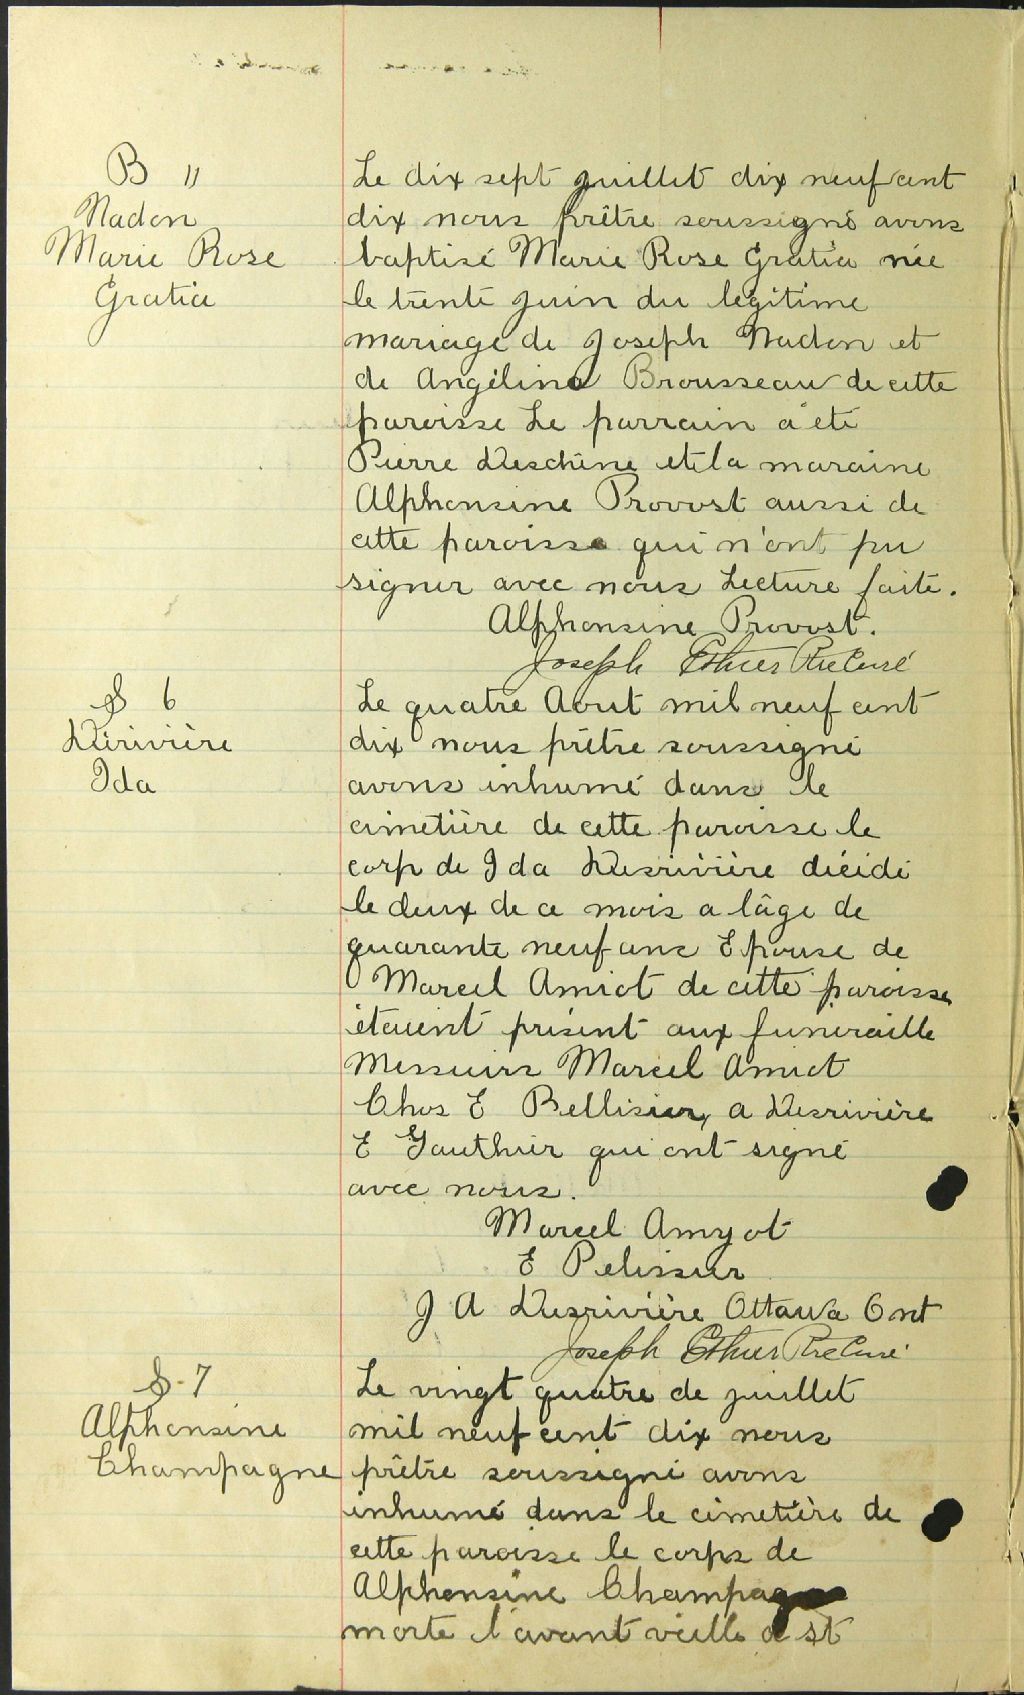 B 11
Nadon
Marie Rose
Gratia
Le dix sept juillet dix neuf cent
dix nous prêtre soussigné avons
baptisé Marie Rose Gratia née
le trente juin du légitime
mariage de Joseph Nadon et
de Angélina Brousseau de cette
paroisse Le parrain a été
Pierre Deschène et la maraine
Alphonsine Provost aussi de
cette paroisse qui n'ont pu
signer avec nous Lecture faite.
Alphonsine Provost.
Joseph Ethier Ptre Curé
S 6
Désrivière
Ida
Le quatre Aout mil neuf cent
dix nous prêtre soussigné
avons inhumé dans le
cimetière de cette paroisse le
corp de Ida Desrivière décédé
le deux de ce mois a lâge de
quarante neuf ans Epouse de
Marcel Amiot de cette paroisse
étaient présent aux funeraille
Messieurs Marcel Amiot
Chas E Bellisier, a Desrivière
E Gauthier qui ont signé
avec nous.
Marcel Amyot
E Pelissier
J A Desrivière Ottawa Ont
Joseph Ethier Ptre Curé
S-7
Alphonsine
Champagne
Le vingt quatre de juillet
mil neuf cent dix nous
prêtre soussigné avons
inhumé dans le cimetière de
cette paroisse le corps de
Alphonsine Champagne
morte l'avant veille a St